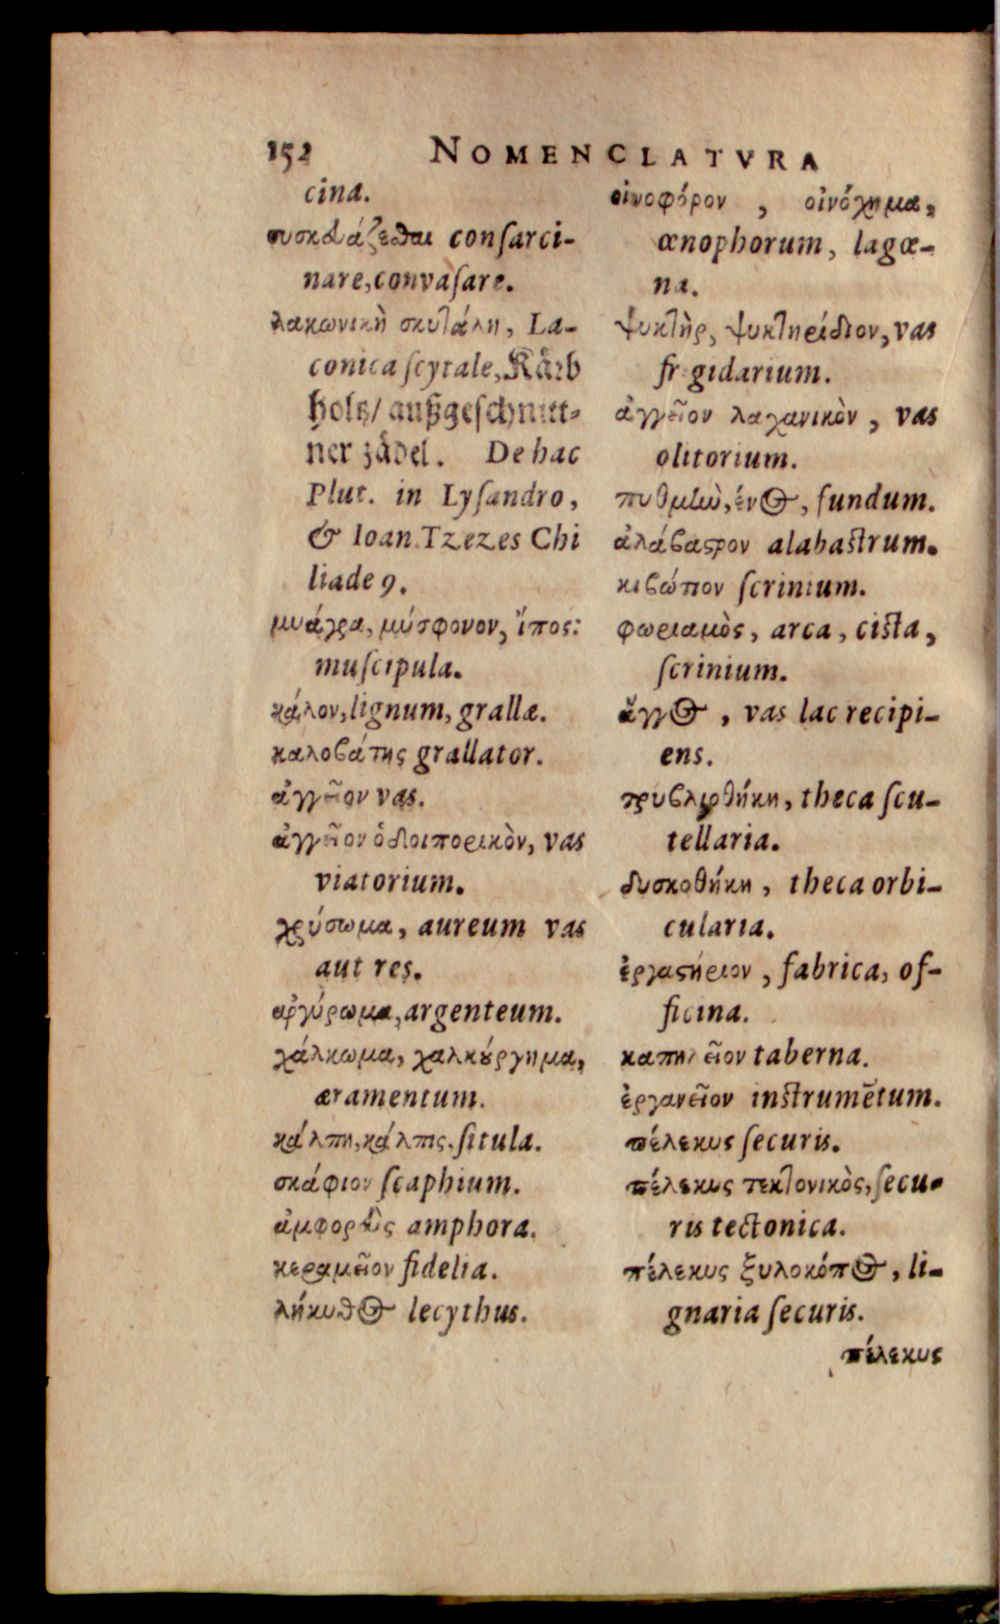 152 NOMENCLATVRA
cina.
συσκευάζεσθαι conſarci-
nare, convaſare.
λακωνικὴ σκυτάλη, La-
conica ſcytale, Kaͤrb
holtz/ außgeſchnitt-
ner zaͤdel. De hac
Plut. in Lyſandro,
& Ioan. Tzezes Chi
liade 9.
μυάγρα, μύσφονον, ἵπος:
muſcipula.
κάλον, lignum, grallæ.
καλοβάτης grallator.
ἀγγεῖον vas.
ἀγγεῖον ὁδοιπορικὸν, vas
viatorium.
χρύσωμα, aureum vas
aut res.
ἀργύρωμα, argenteum.
χάλκωμα, χαλκούργημα,
æramentum.
κάλπη, κάλπις, ſitula.
σκάφιον ſcaphium.
ἀμφορεὺς amphora.
κεραμεῖον fidelia.
λήκυθος lecythus.
οἰνοφόρον, οἰνόχημα,
œnophorum, lagœ-
na.
ψυκτὴρ, ψυκτηρίδιον, vas
frigidarium.
ἀγγεῖον λαχανικὸν, vas
olitorium.
πυθμὴν, ένος, fundum.
ἀλάβαστρον alabaſtrum.
κιβώτιον ſcrinium.
φωριαμὸς, arca, ciſta,
ſcrinium.
ἄγγος, vas lac recipi-
ens.
τρυβλιοθήκη, theca ſcu-
tellaria.
δυσκοθήκη, theca orbi-
cularia.
ἐργαστήριον, fabrica, of-
ficina.
καπηλεῖον taberna.
ἐργανεῖον inſtrumẽtum.
πέλεκυς ſecuris.
πέλεκυς τεκτονικὸς, ſecu-
ris tectonica.
πέλεκυς ξυλοκόπος, li-
gnaria ſecuris.
πέλεκυς